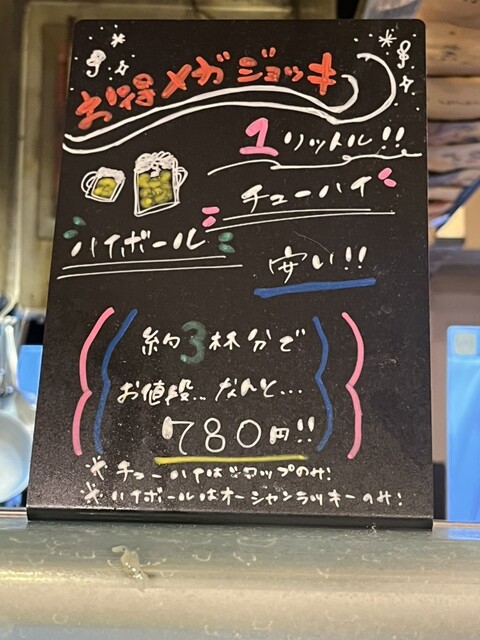 お得メガジョッキ
1リットル!!
チューハイ
ハイボール
安い!!
約3杯分で
お値段..なんと...
780円!!
※チューハイはシロップのみ!
※ハイボールはオーシャンラッキーのみ!